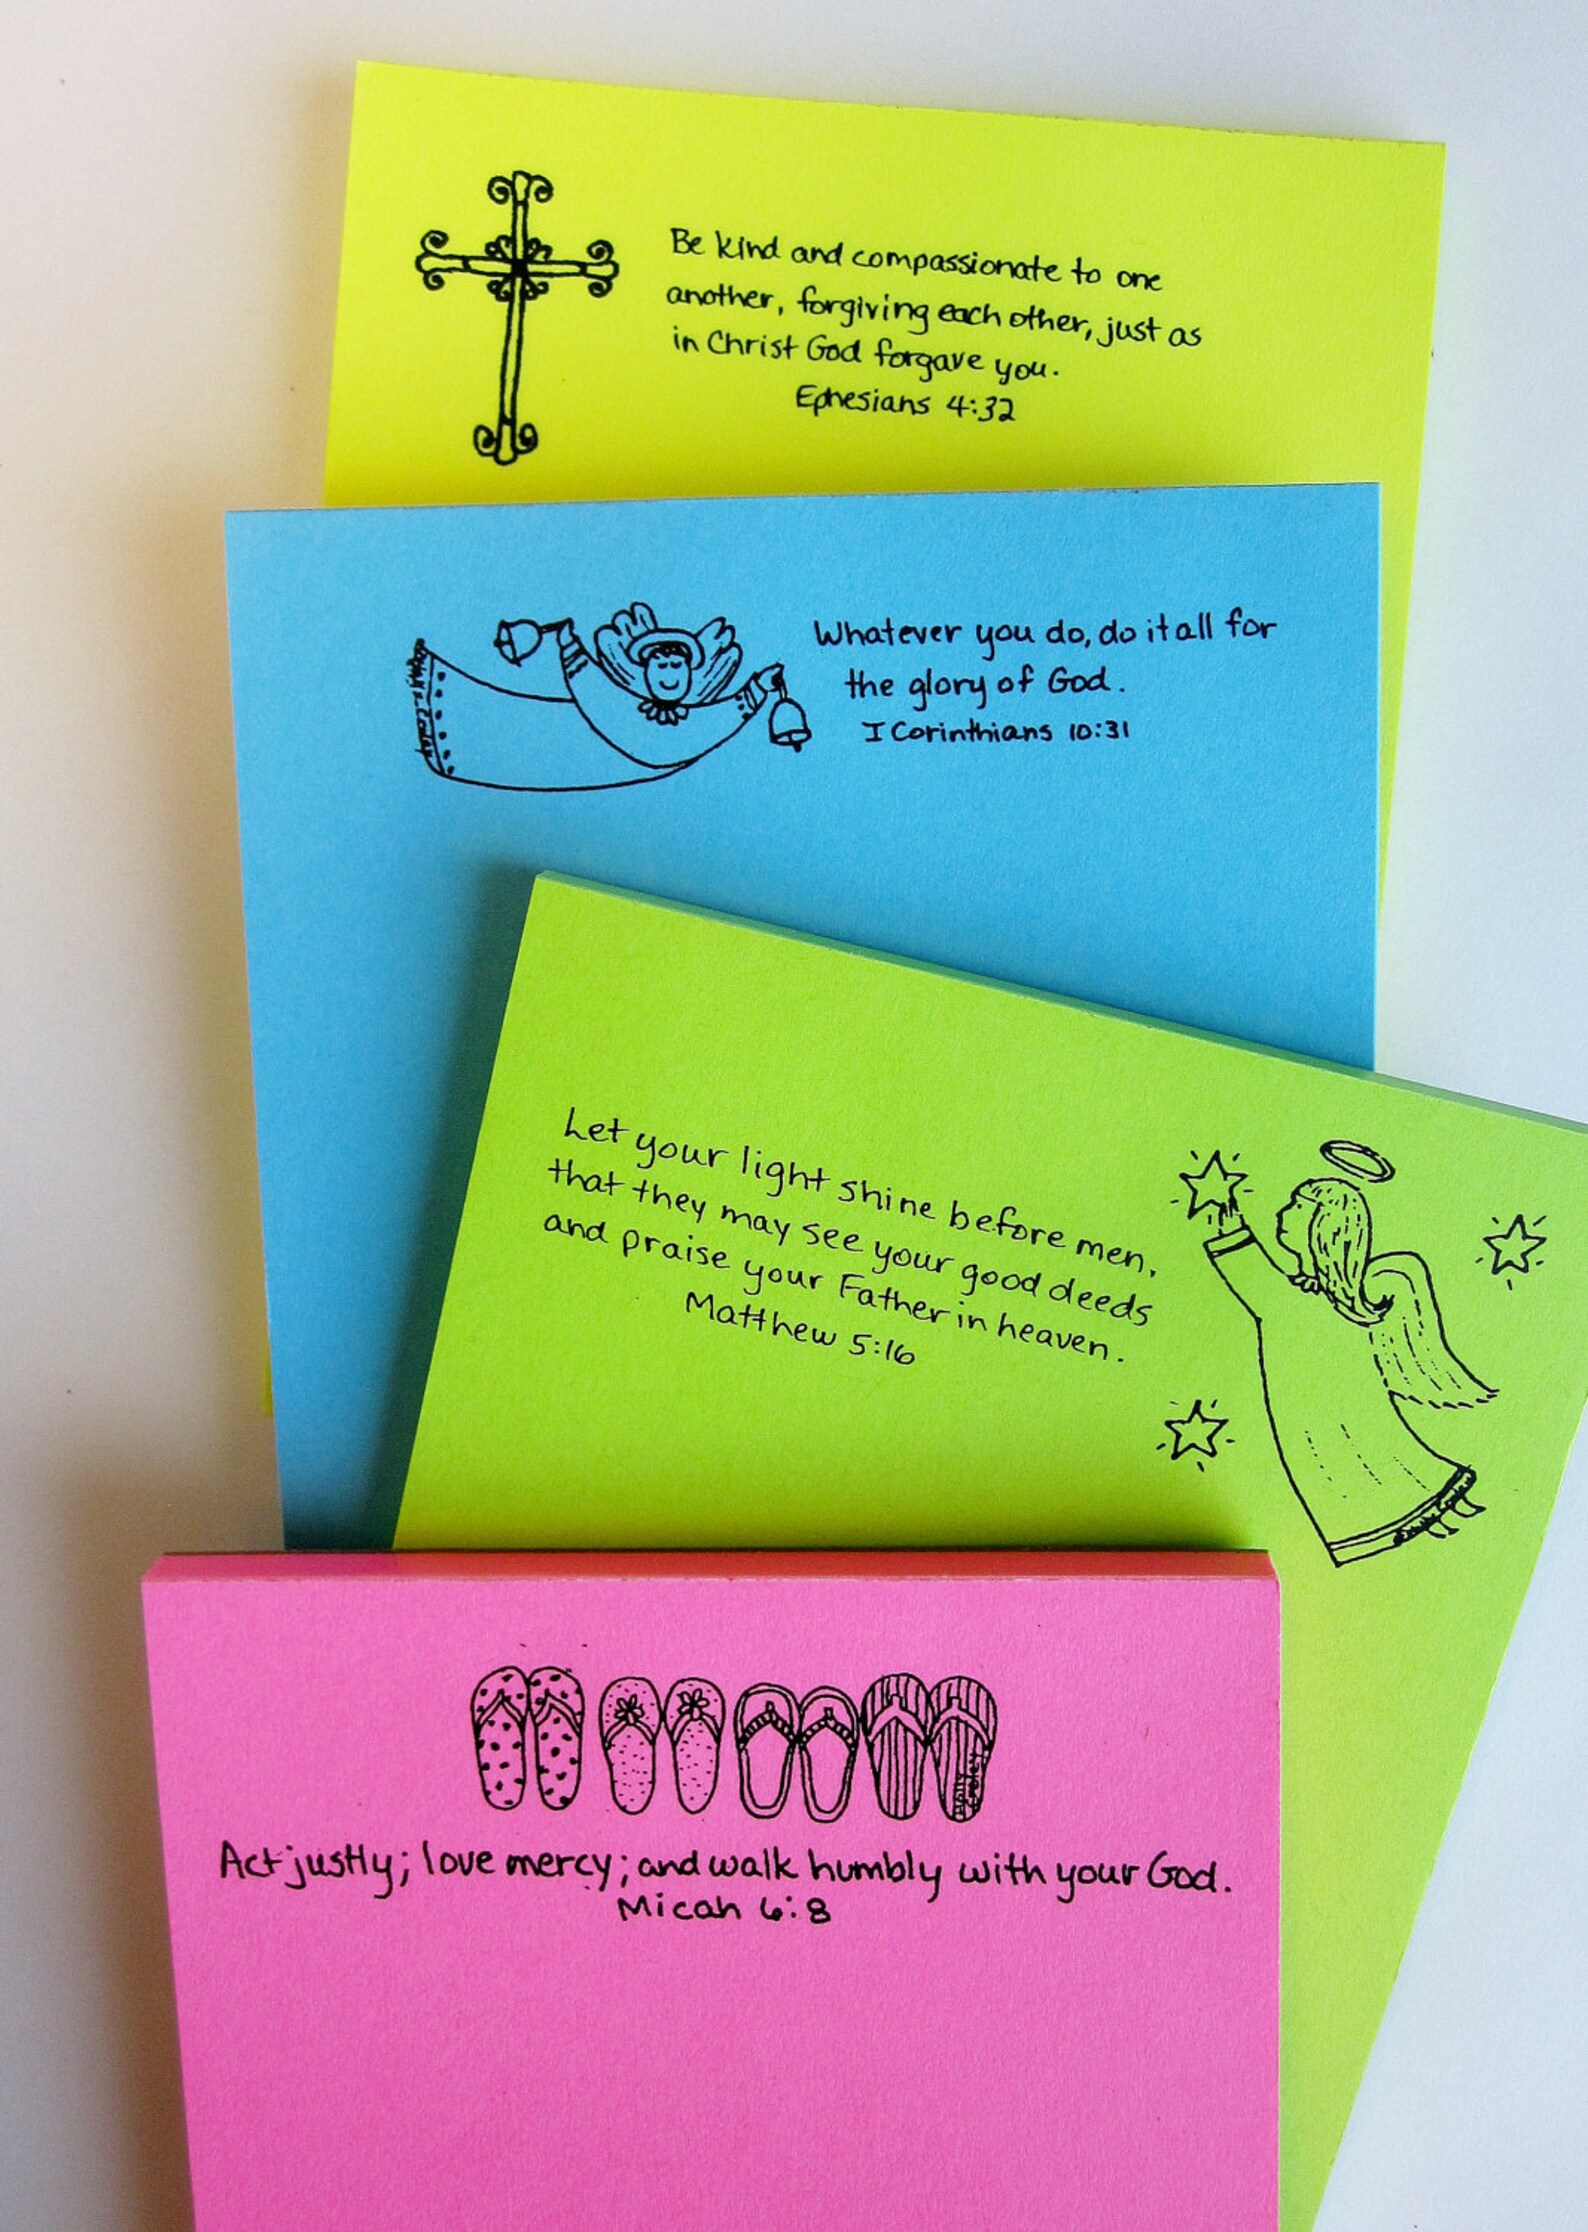 Be kind and compassionate to one
another, forgiving each other, just as
in Christ God forgave you.
Ephesians 4:32
Whatever you do, do it all for
the glory of God.
I Corinthians 10:31
Let your light shine before men,
that they may see your good deeds
and praise your Father in heaven.
Matthew 5:16
Act justly; love mercy; and walk humbly with your God.
Micah 6:8